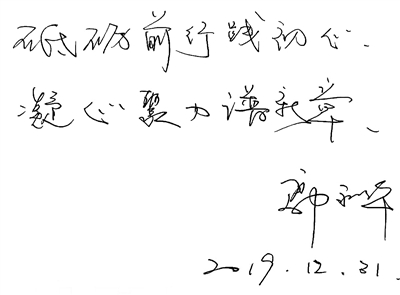 砥砺前行践初心、
凝心聚力谱新章、
2019.12.31.